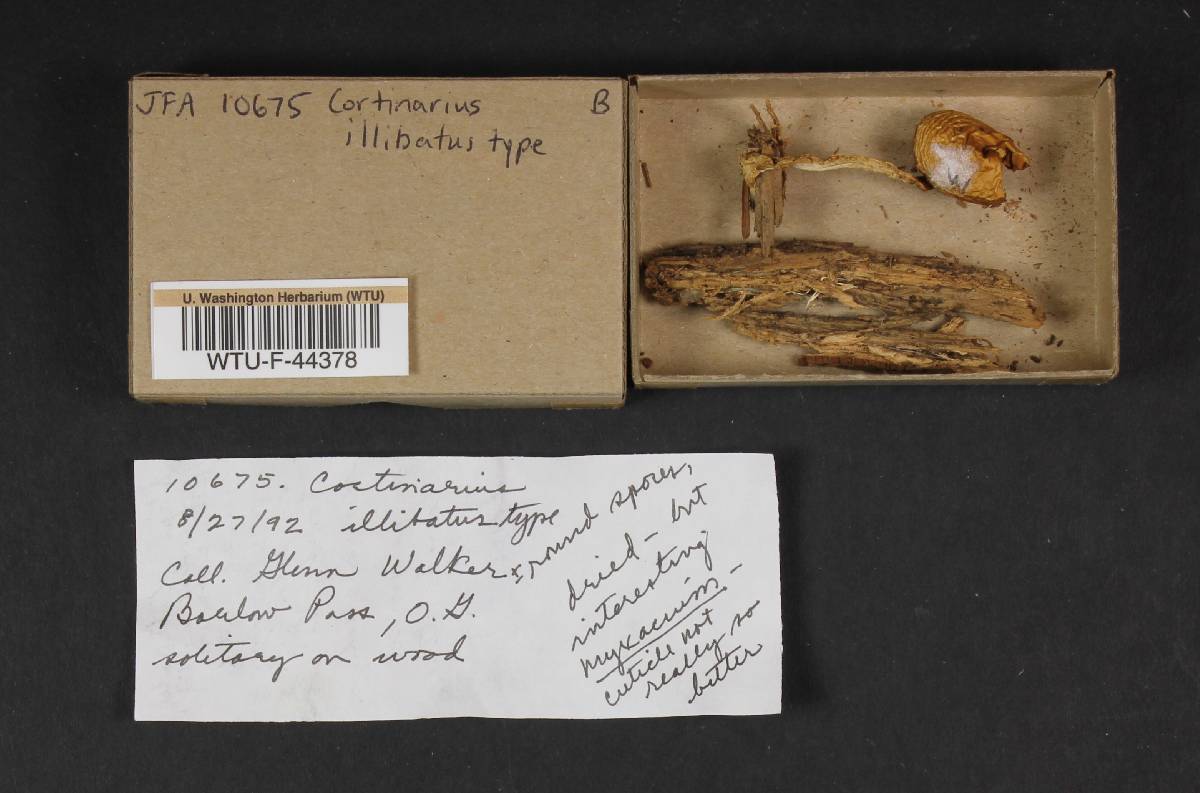 JFA 10675 Cortinarius B
illibatus type
U. Washington Herbarium (WTU)
WTU-F-44378
10675. Cortinarius
8/27/92 illibatus type
Coll. Glenn Walker
Barlow Pass, O.G.
solitary on wood
± round spores,
dried - but
interesting
myxacium -
cuticle not
really so
bitter